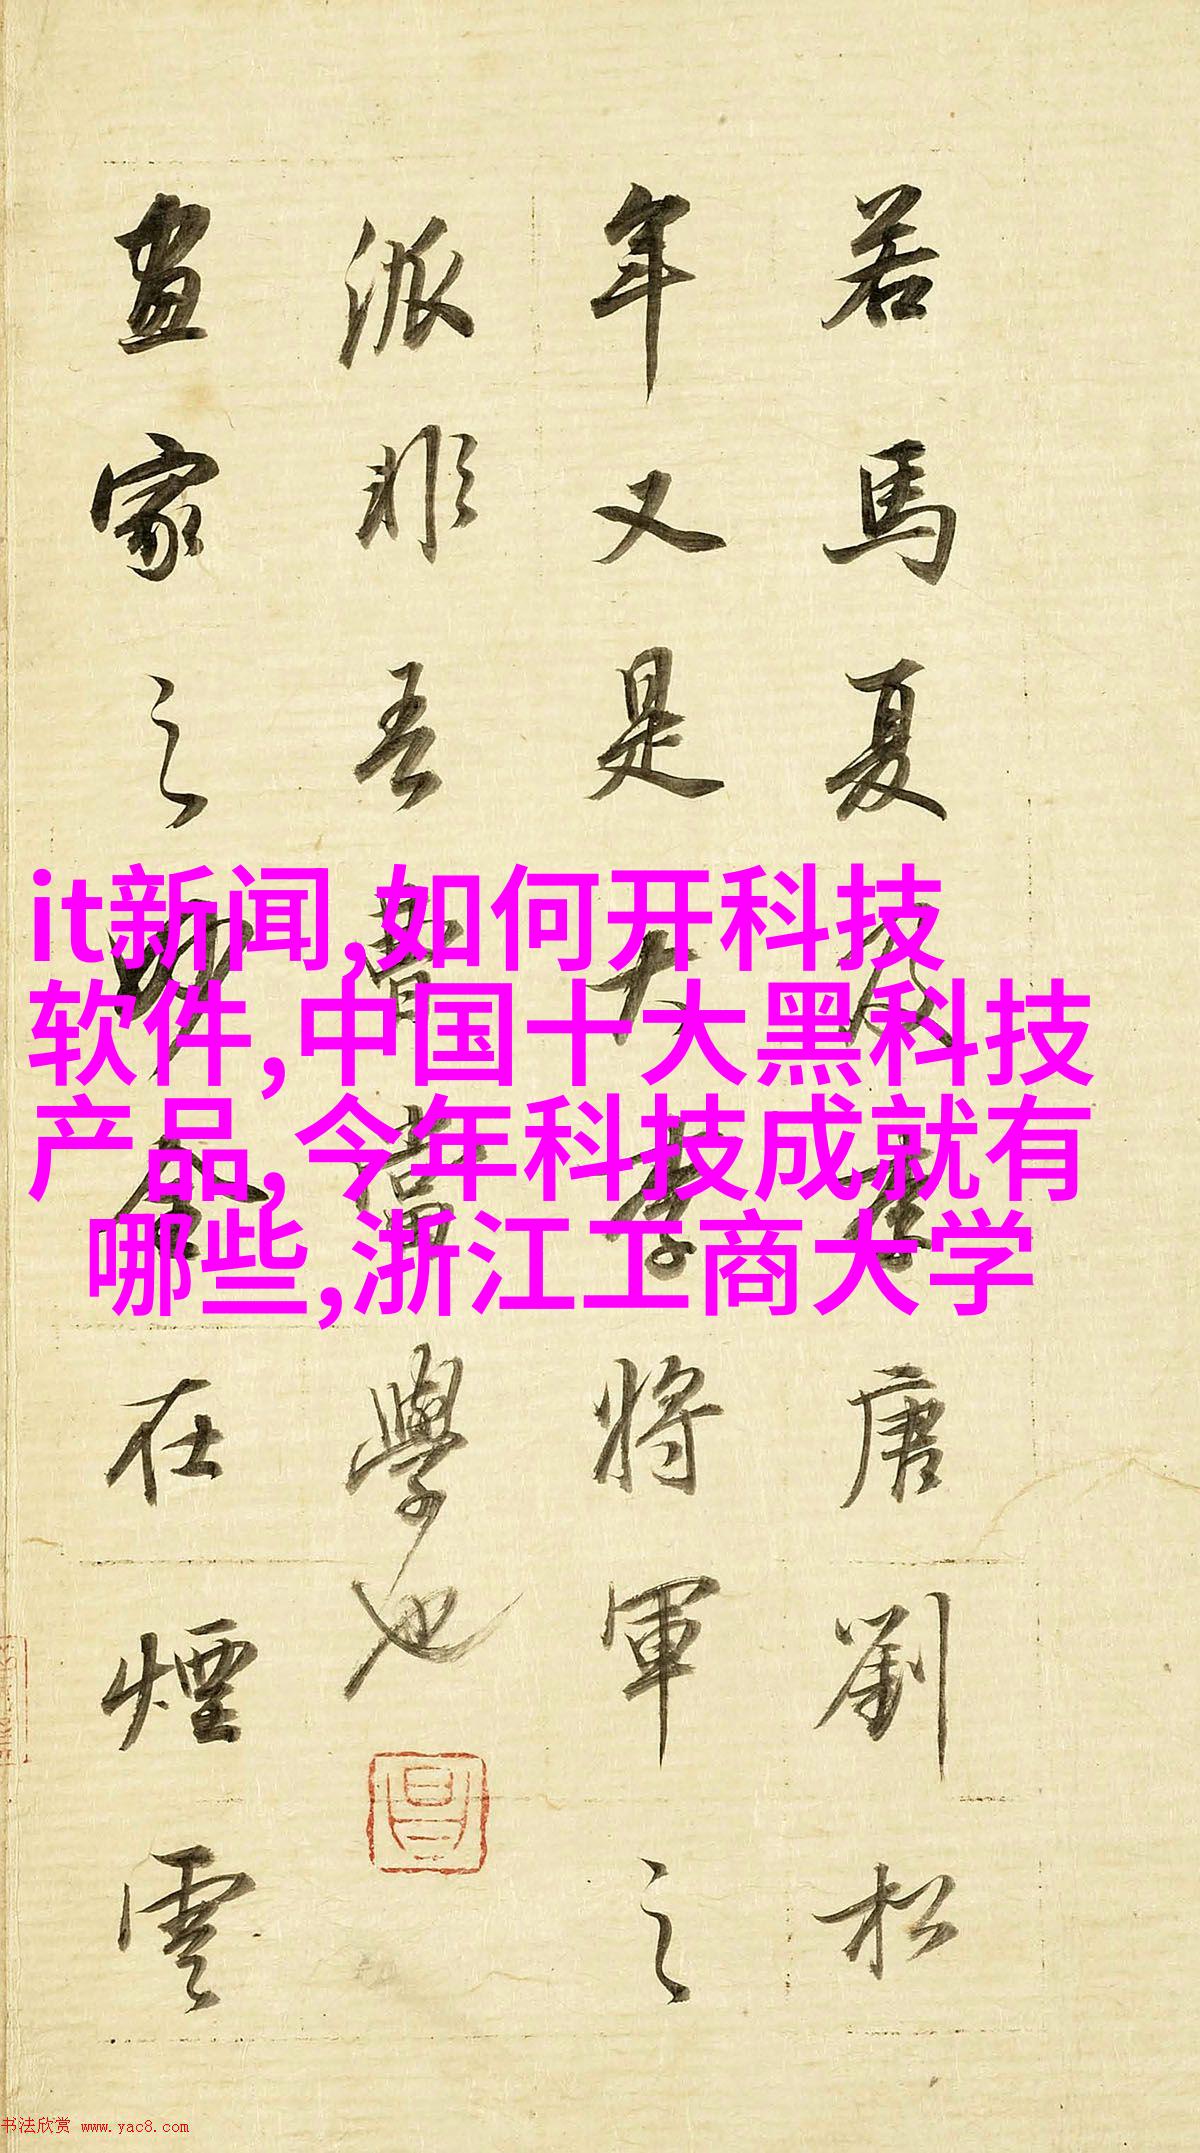 若馬夏及李唐劉松
年又是大李將軍之
派非吾曹當學也
畫家之妙全在煙雲
it新闻,如何开科技
软件,中国十大黑科技
产品,今年科技成就有
哪些,浙江工商大学
昌
书法欣赏 www.yac8.com